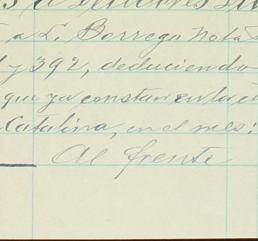 a L. Borrego Nota
y 392, deduciendo
que ya constan en la c
Catalina, en el mes:
Al frente